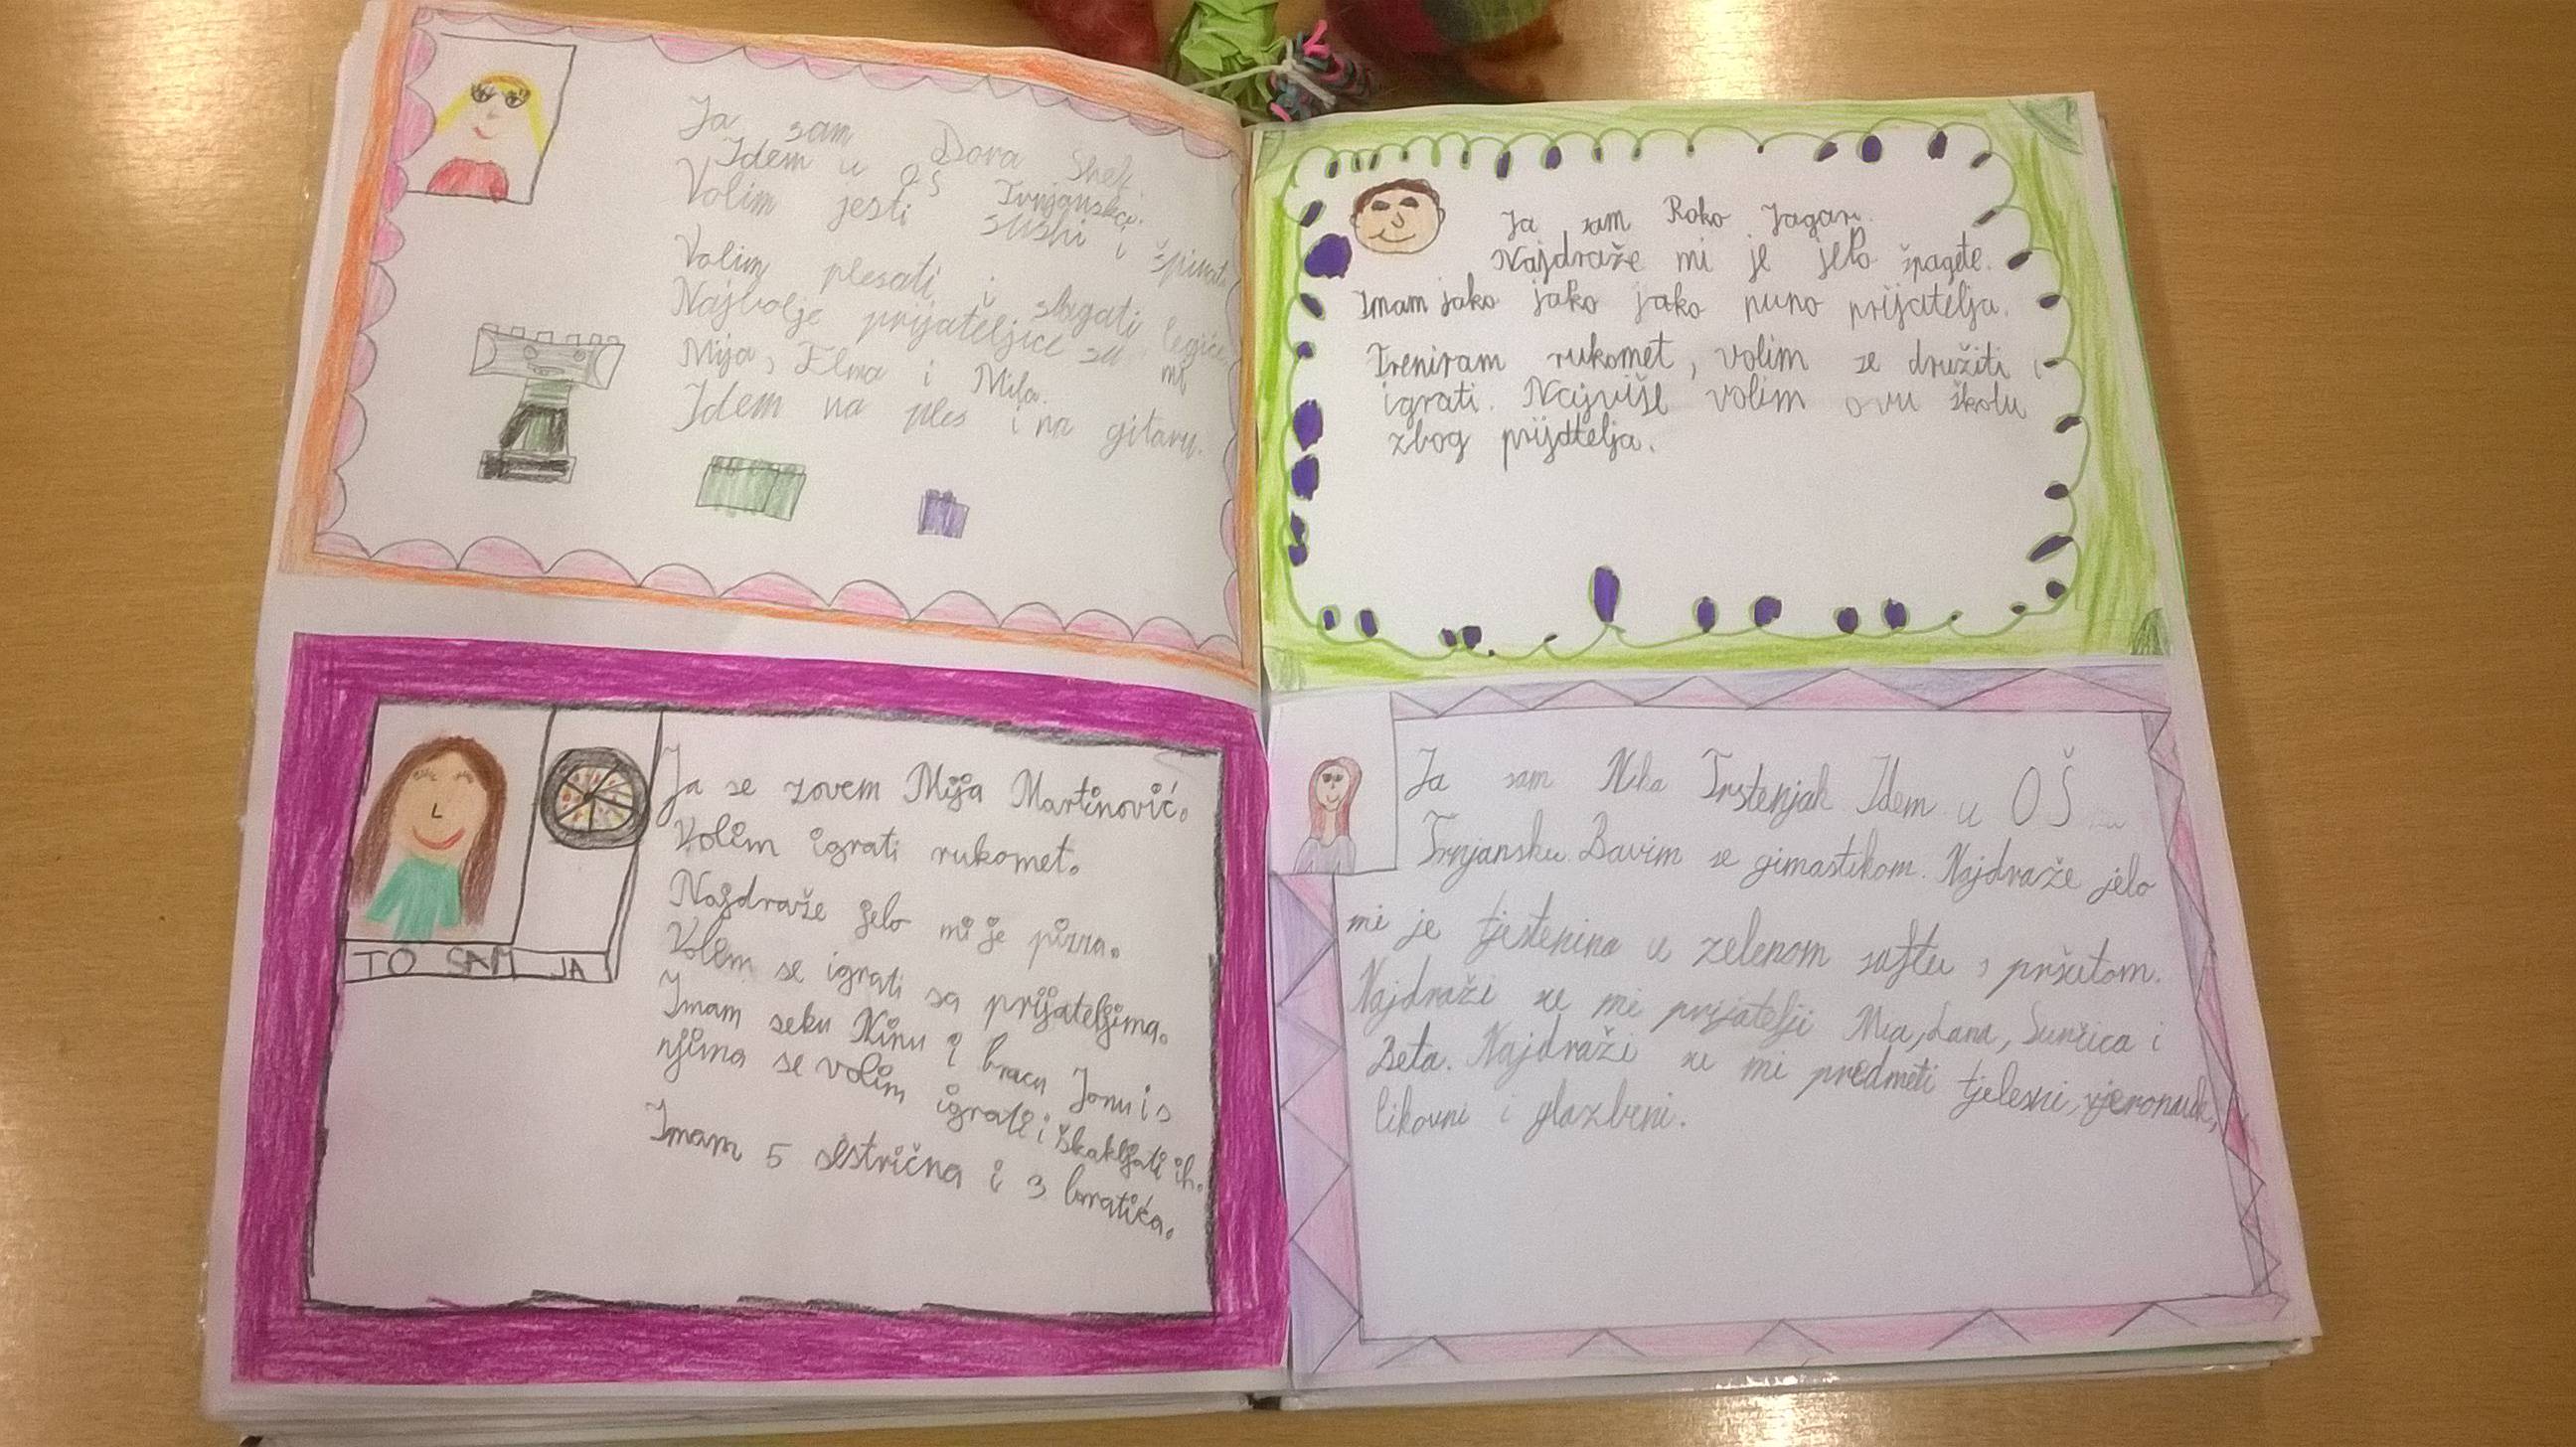 Ja sam Dora Shek.
Idem u OŠ Trnjanska.
Volim jesti sushi i špinat.
Volim plesati i slagati legiće.
Najbolje prijateljice su mi
Mija, Elma i Mila.
Idem na ples i na gitaru.
Ja se zovem Mija Martinović.
Volim igrati rukomet.
Najdraže jelo mi je pizza.
Volem se igrati sa prijateljima.
Imam seku Ninu i bracu Jonu i s
njima se volim igrati i škakljati ih.
Imam 5 sestrična i 3 bratića.
TO SAM JA
Ja sam Roko Jagar.
Najdraže mi je jelo špagete.
Imam jako jako jako puno prijatelja.
Treniram rukomet, volim se družiti i
igrati. Najviše volim ovu školu
zbog prijatelja.
Ja sam Nika Trstenjak Idem u OŠ
Trnjansku. Bavim se gimastikom. Najdraže jelo
mi je tjestenina u zelenom saftu s pršutom.
Najdraži su mi prijatelji Mia, Lana, Sunčica i
Beta. Najdraži su mi predmeti tjelesni, vjeronauk,
likovni i glazbeni.